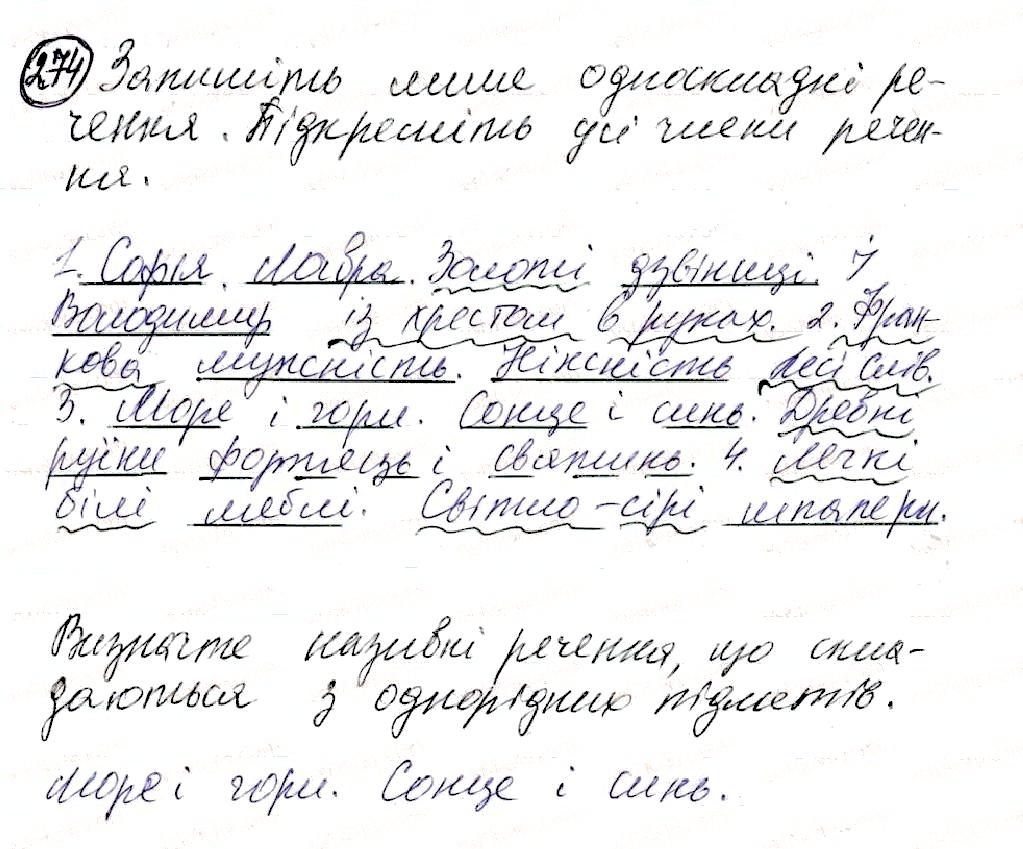 274 Запишіть лише односкладні ре-
чення. Підкресліть усі члени речен-
ня.
1. Софія. Лавра. Золоті дзвіниці. І
Володимир із хрестом в руках. 2. Фран-
кова мужність. Ніжність Лесі слів.
3. Море і гори. Сонце і синь. Древні
руїни фортець і святинь. 4. Легкі
білі меблі. Світло-сірі шпалери.
Визначте називні речення, що скла-
даються з однорідних підметів.
Море і гори. Сонце і синь.